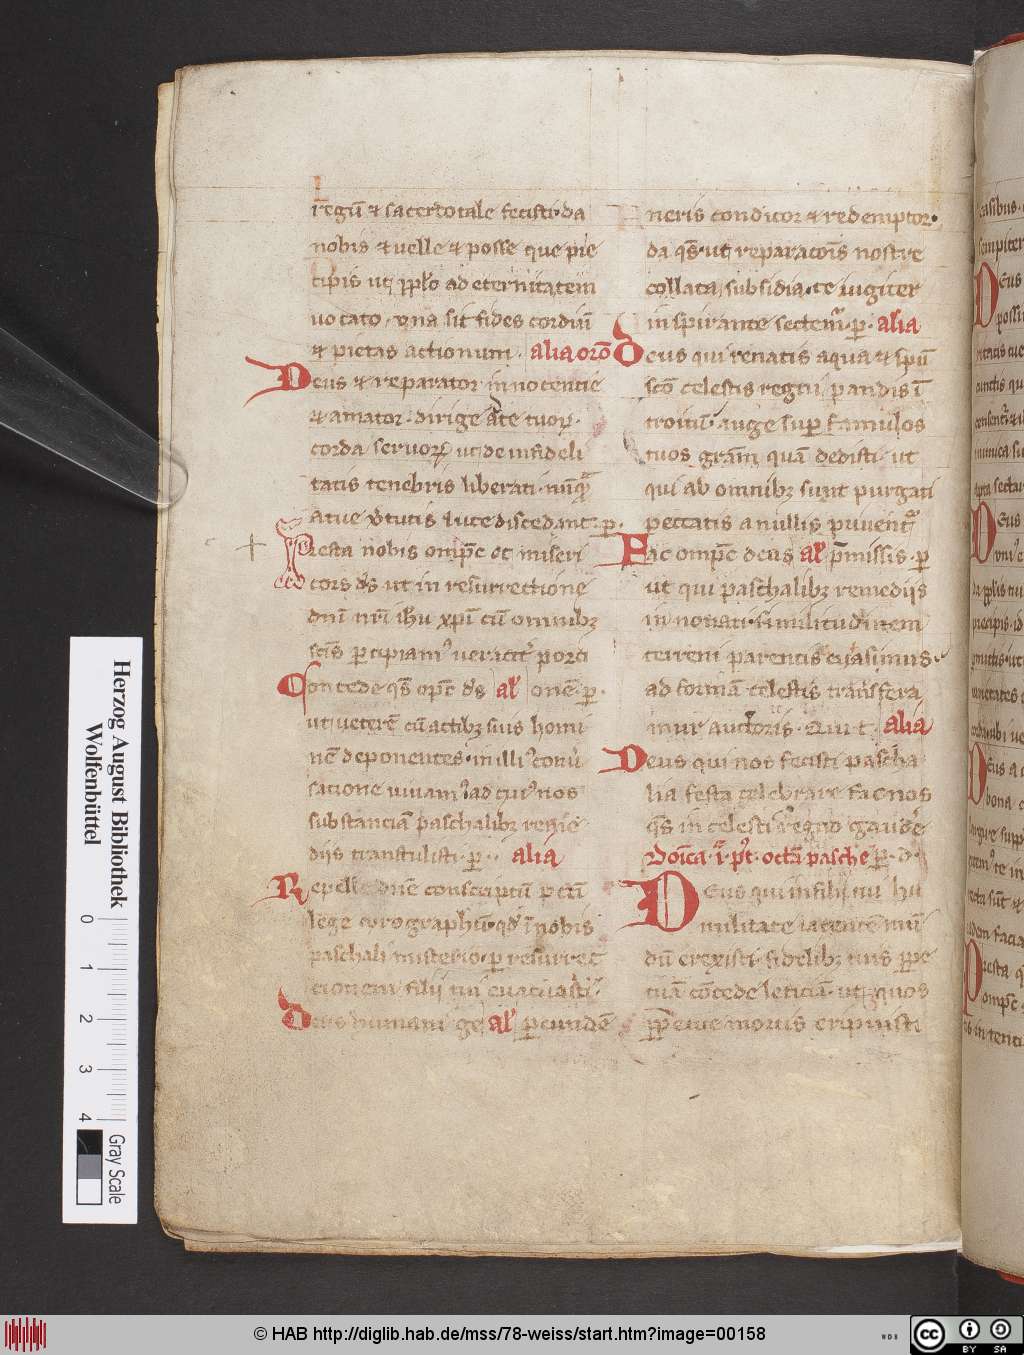 regū & sacerdotale fecisti · da
nobis & uelle & posse que pre
cipis ut pplo ad eternitatem
uocato · una sit fides cordiū
& pietas actionum · alia orō
Deus & reparator innocentie
& amator · dirige ate tuoꝝ
corda seruoꝝ ut de infideli
tatis tenebris liberati · nūqᷓ
atue ututis luce discedant · p̱ ·
Presta nobis omp̄c &
miseri
cors ds̄ ut in resurrectione
dn̄i nr̄i ih̄u xp̄i cū omnibꝫ
scīs ꝑcipiamꝰ ueracit̓ porci
onē · ꝑ · al̓
Concede qs̄ op̄c ds̄
ut ueterē cū actibꝫ suis homi
nē deponentes · in illiꝰ conu̓
satione uiuamꝰ ad cuiꝰ nos
substanciā paschalibꝫ reme
diis transtulisti · ꝑ · alia
Repelle dn̄e conscriptū peccī
lege cyrographū · qd̓ ī nobis
paschali misterio · ꝑ resurrec
tionem filij tui euacuasti ·
ꝑ eundē al̓
Deus humani ge
neris conditor & redemptor ·
da qs̄ · ut reparacōis nostre
collata subsidia · te iugiter
inspirante sectemᷓ · ꝑ · alia
Deus qui renatis aqua & spū
scō celestis regni pandis ī
troitū · auge suꝑ famulos
tuos grām quā dedisti · ut
qui ab omnibꝫ sunt purgati
peccatis a nullis p̱uuentᷓ
pmissis · ꝑ al̓
Fac omp̄c deus
ut qui paschalibꝫ remediis
innouati · similitudinem
terreni parentis euasimus ·
ad formā celestis transfera
mur auctoris · Qui t · alia
Deus qui nos fecisti pascha
lia festa celebrare · fac nos
qs̄ in celesti regno gaude̓
ꝑ · d · Dōica · ī · p̓t · octā pasche
Deus qui in filij tui hu
militate iacentē mū
dū erexisti · fidelibꝫ tuis ꝑpe
tuā cōcede leticiā · ut quos
ꝑpetue mortis eripuisti
Herzog August Bibliothek
Wolfenbüttel
0 1 2 3 4
Gray Scale
© HAB http://diglib.hab.de/mss/78-weiss/start.htm?image=00158
WDB
cc BY SA